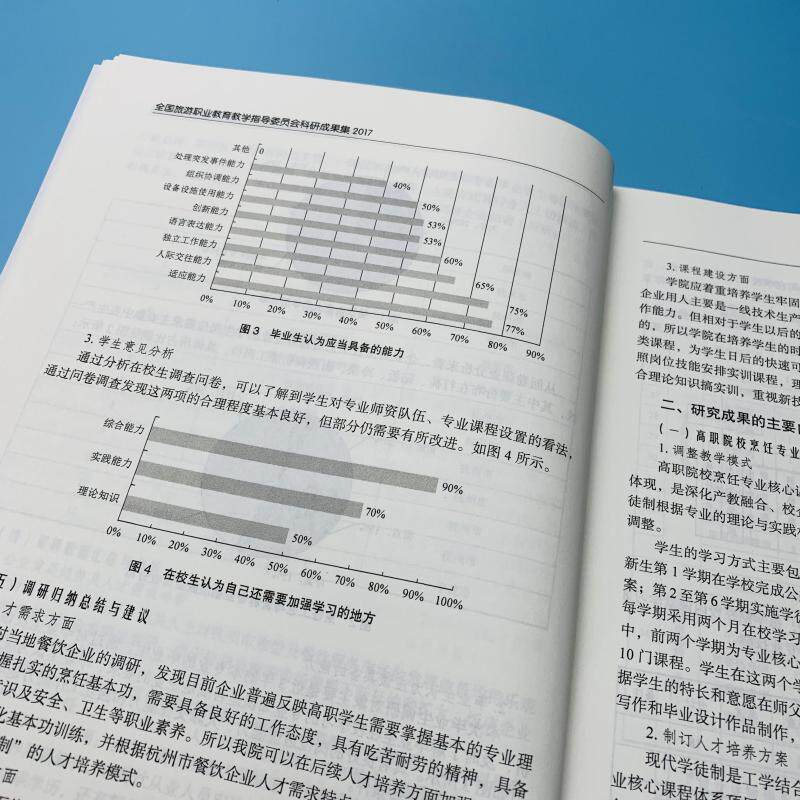 全国旅游职业教育教学指导委员会科研成果集 2017
其他
0
处理突发事件能力
40%
组织协调能力
50%
设备设施使用能力
53%
创新能力
53%
语言表达能力
60%
独立工作能力
65%
人际交往能力
75%
适应能力
77%
0% 10% 20% 30% 40% 50% 60% 70% 80% 90%
图 3 毕业生认为应当具备的能力
3. 学生意见分析
通过分析在校生调查问卷，可以了解到学生对专业师资队伍、专业课程设置的看法，
通过问卷调查发现这两项的合理程度基本良好，但部分仍需要有所改进。如图 4 所示。
综合能力
90%
实践能力
70%
理论知识
50%
0% 10% 20% 30% 40% 50% 60% 70% 80% 90% 100%
图 4 在校生认为自己还需要加强学习的地方
五）调研归纳总结与建议
才需求方面
对当地餐饮企业的调研，发现目前企业普遍反映高职学生需要掌握基本的专业理
握扎实的烹饪基本功，需要具备良好的工作态度，具有吃苦耐劳的精神，具备
识及安全、卫生等职业素养。所以我院可以在后续人才培养方面加强
化基本功训练，并根据杭州市餐饮企业人才需求特点
制”的人才培养模式。
面
3. 课程建设方面
学院应着重培养学生牢固
企业用人主要是一线技术生产
作能力。但相对于学生以后的
的，所以学院在培养学生的时
类课程，为学生日后的快速可
照岗位技能安排实训课程，理
合理论知识搞实训，重视新技
二、研究成果的主要
（一）高职院校烹饪专业
1. 调整教学模式
高职院校烹饪专业核心课
体现，是深化产教融合、校企
徒制根据专业的理论与实践
调整。
学生的学习方式主要包
新生第 1 学期在学校完成公
案；第 2 至第 6 学期实施学徒
每学期采用两个月在校学习
中，前两个学期为专业核心
10 门课程。学生在这两个学
据学生的特长和意愿在师父
写作和毕业设计作品制作，
2. 制订人才培养方案
现代学徒制是工学结合
业核心课程体系